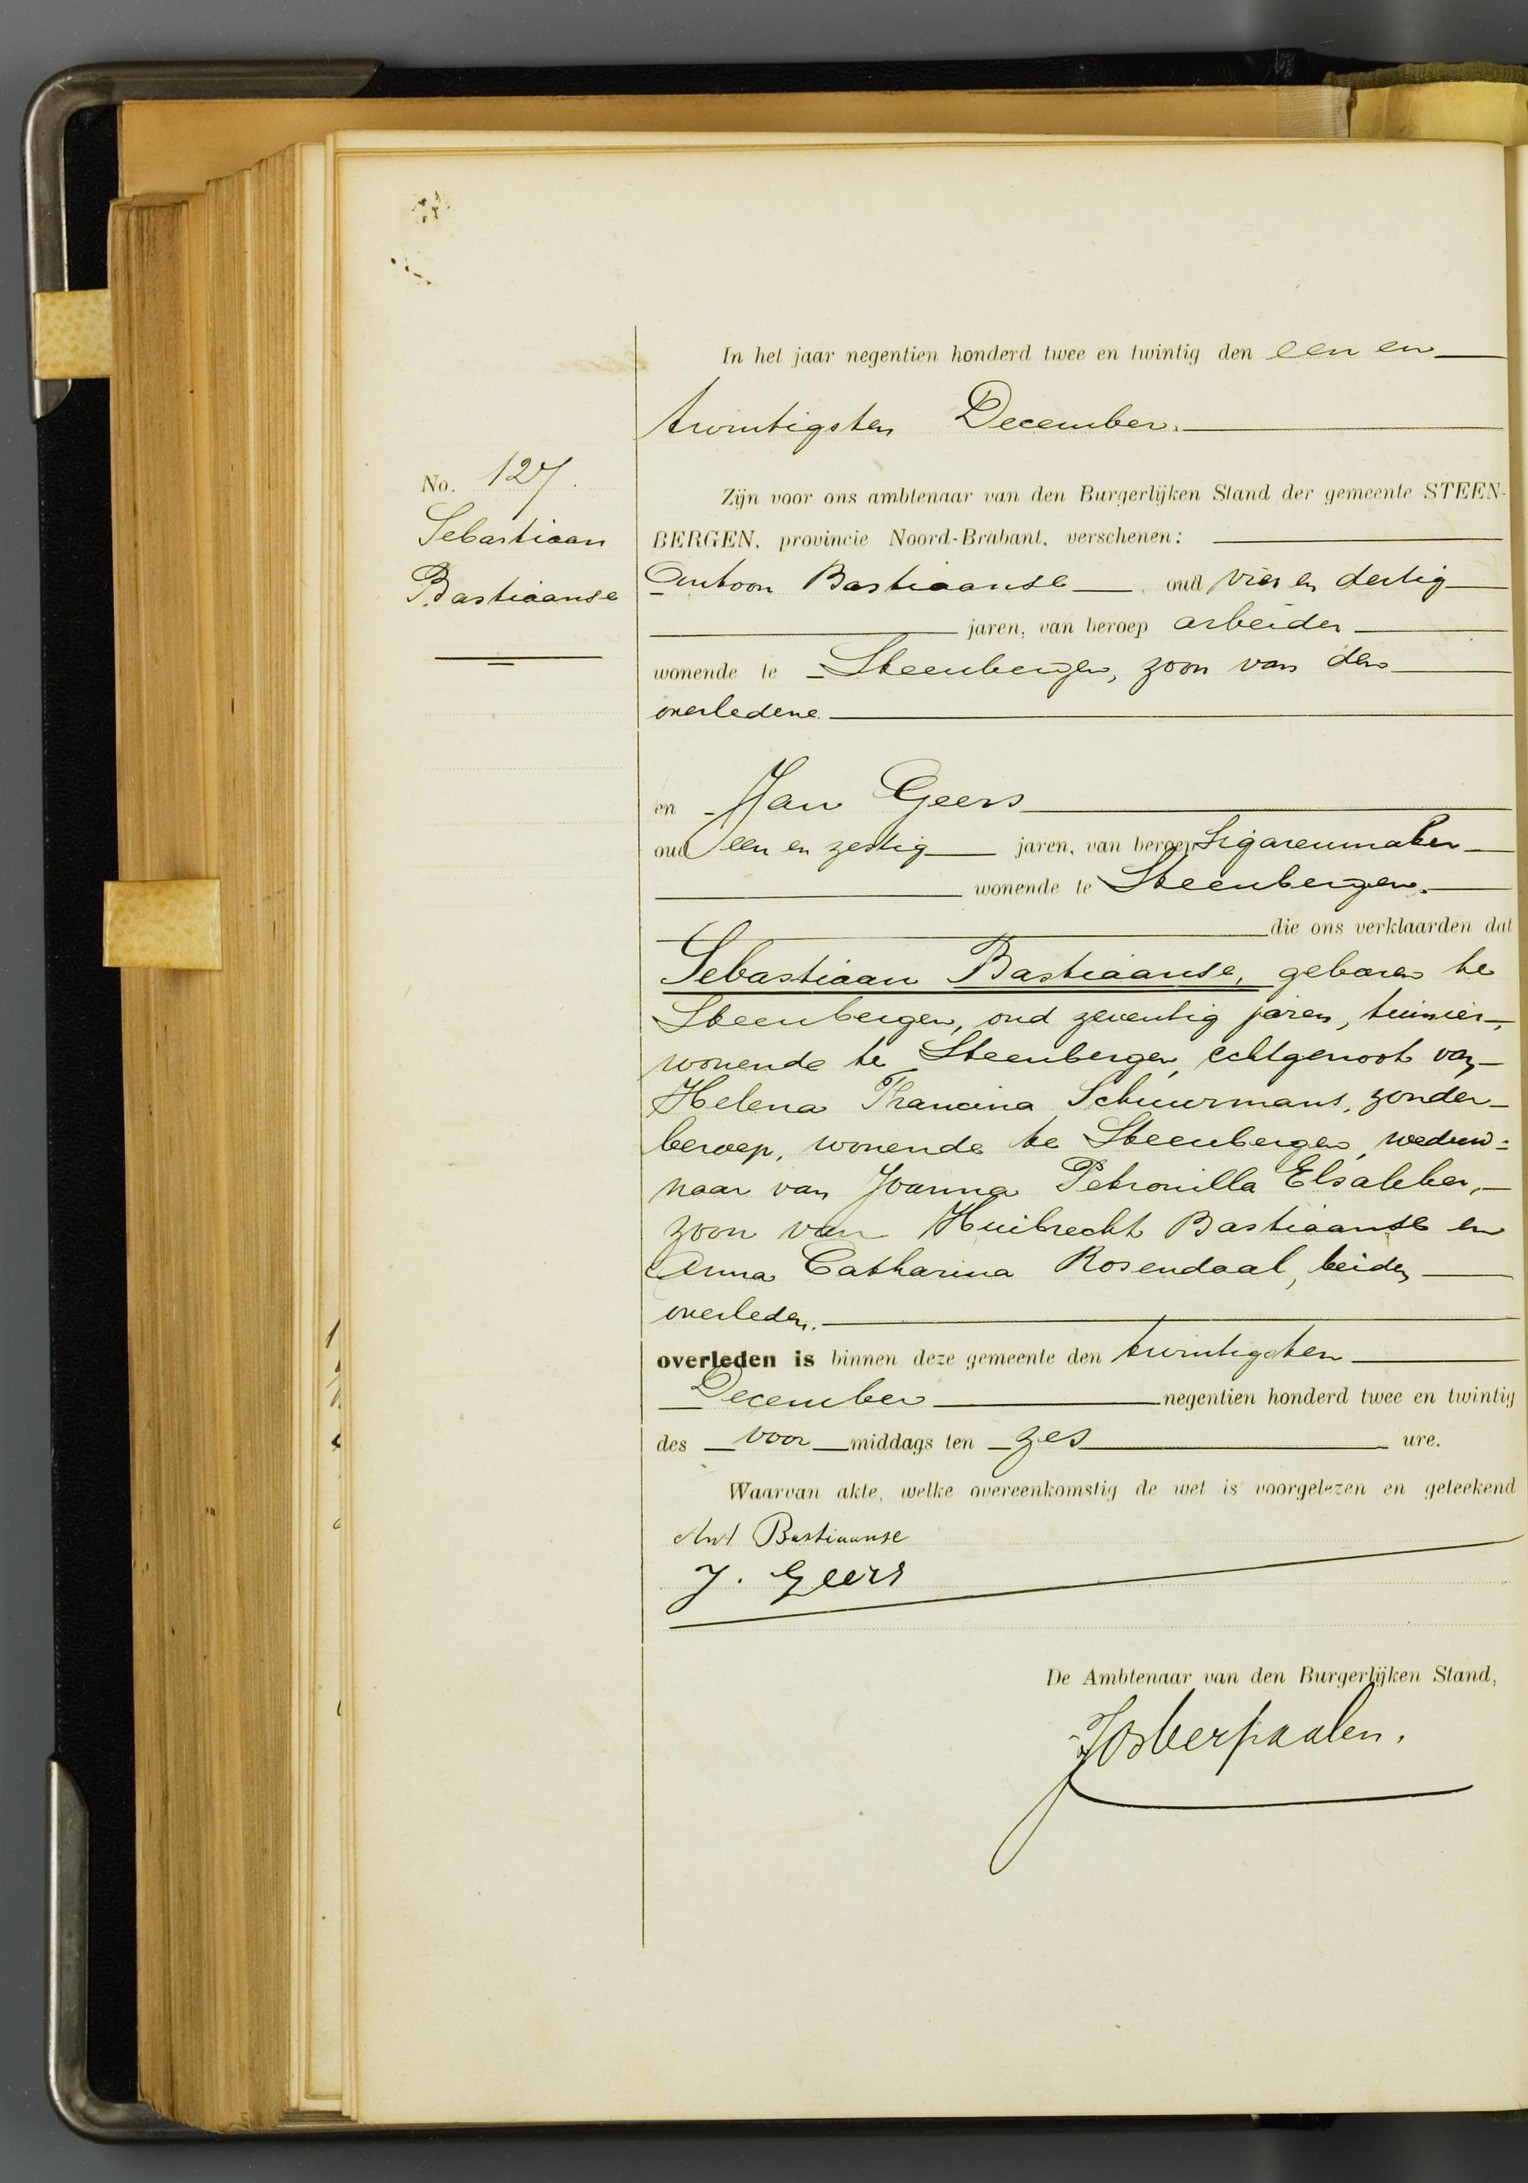 In het jaar negentien honderd twee en twintig den een en
twintigsten December.
No. 127.
Sebastiaan
Bastiaanse
Zijn voor ons ambtenaar van den Burgerlijken Stand der gemeente STEEN-
BERGEN, provincie Noord-Brabant, verschenen:
Antoon Bastiaanse oud vier en dertig
jaren, van beroep arbeider
wonende te Steenbergen, zoon van den
overledene
en Jan Geers
oud een en zestig jaren, van beroep Sigarenmaker
wonende te Steenbergen.
die ons verklaarden dat
Sebastiaan Bastiaanse, geboren te
Steenbergen, oud zeventig jaren, tuinier,
wonende te Steenbergen, echtgenoot van
Helena Francina Schuurmans, zonder
beroep, wonende te Steenbergen, weduw=
naar van Joanna Petronilla Elsakker,
zoon van Huibrecht Bastiaanse en
Anna Catharina Rosendaal, beiden
overleden.
overleden is binnen deze gemeente den twintigsten
December negentien honderd twee en twintig
des voor middags ten zes ure.
Waarvan akte, welke overeenkomstig de wet is voorgelezen en geteekend
Ant Bastiaanse
J. Geers
De Ambtenaar van den Burgerlijken Stand,